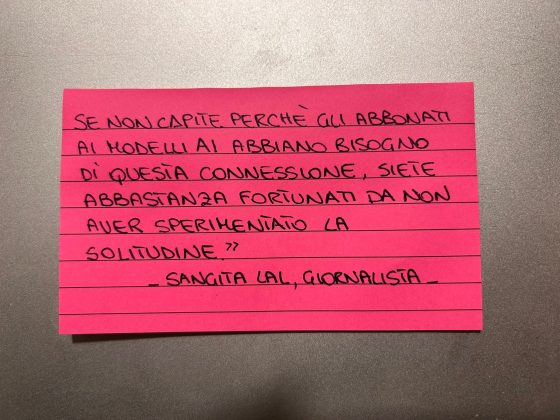 SE NON CAPITE PERCHÈ GLI ABBONATI
AI MODELLI AI ABBIANO BISOGNO
DI QUESTA CONNESSIONE, SIETE
ABBASTANZA FORTUNATI DA NON
AVER SPERIMENTATO LA
SOLITUDINE."
– SANGITA LAL, GIORNALISTA –